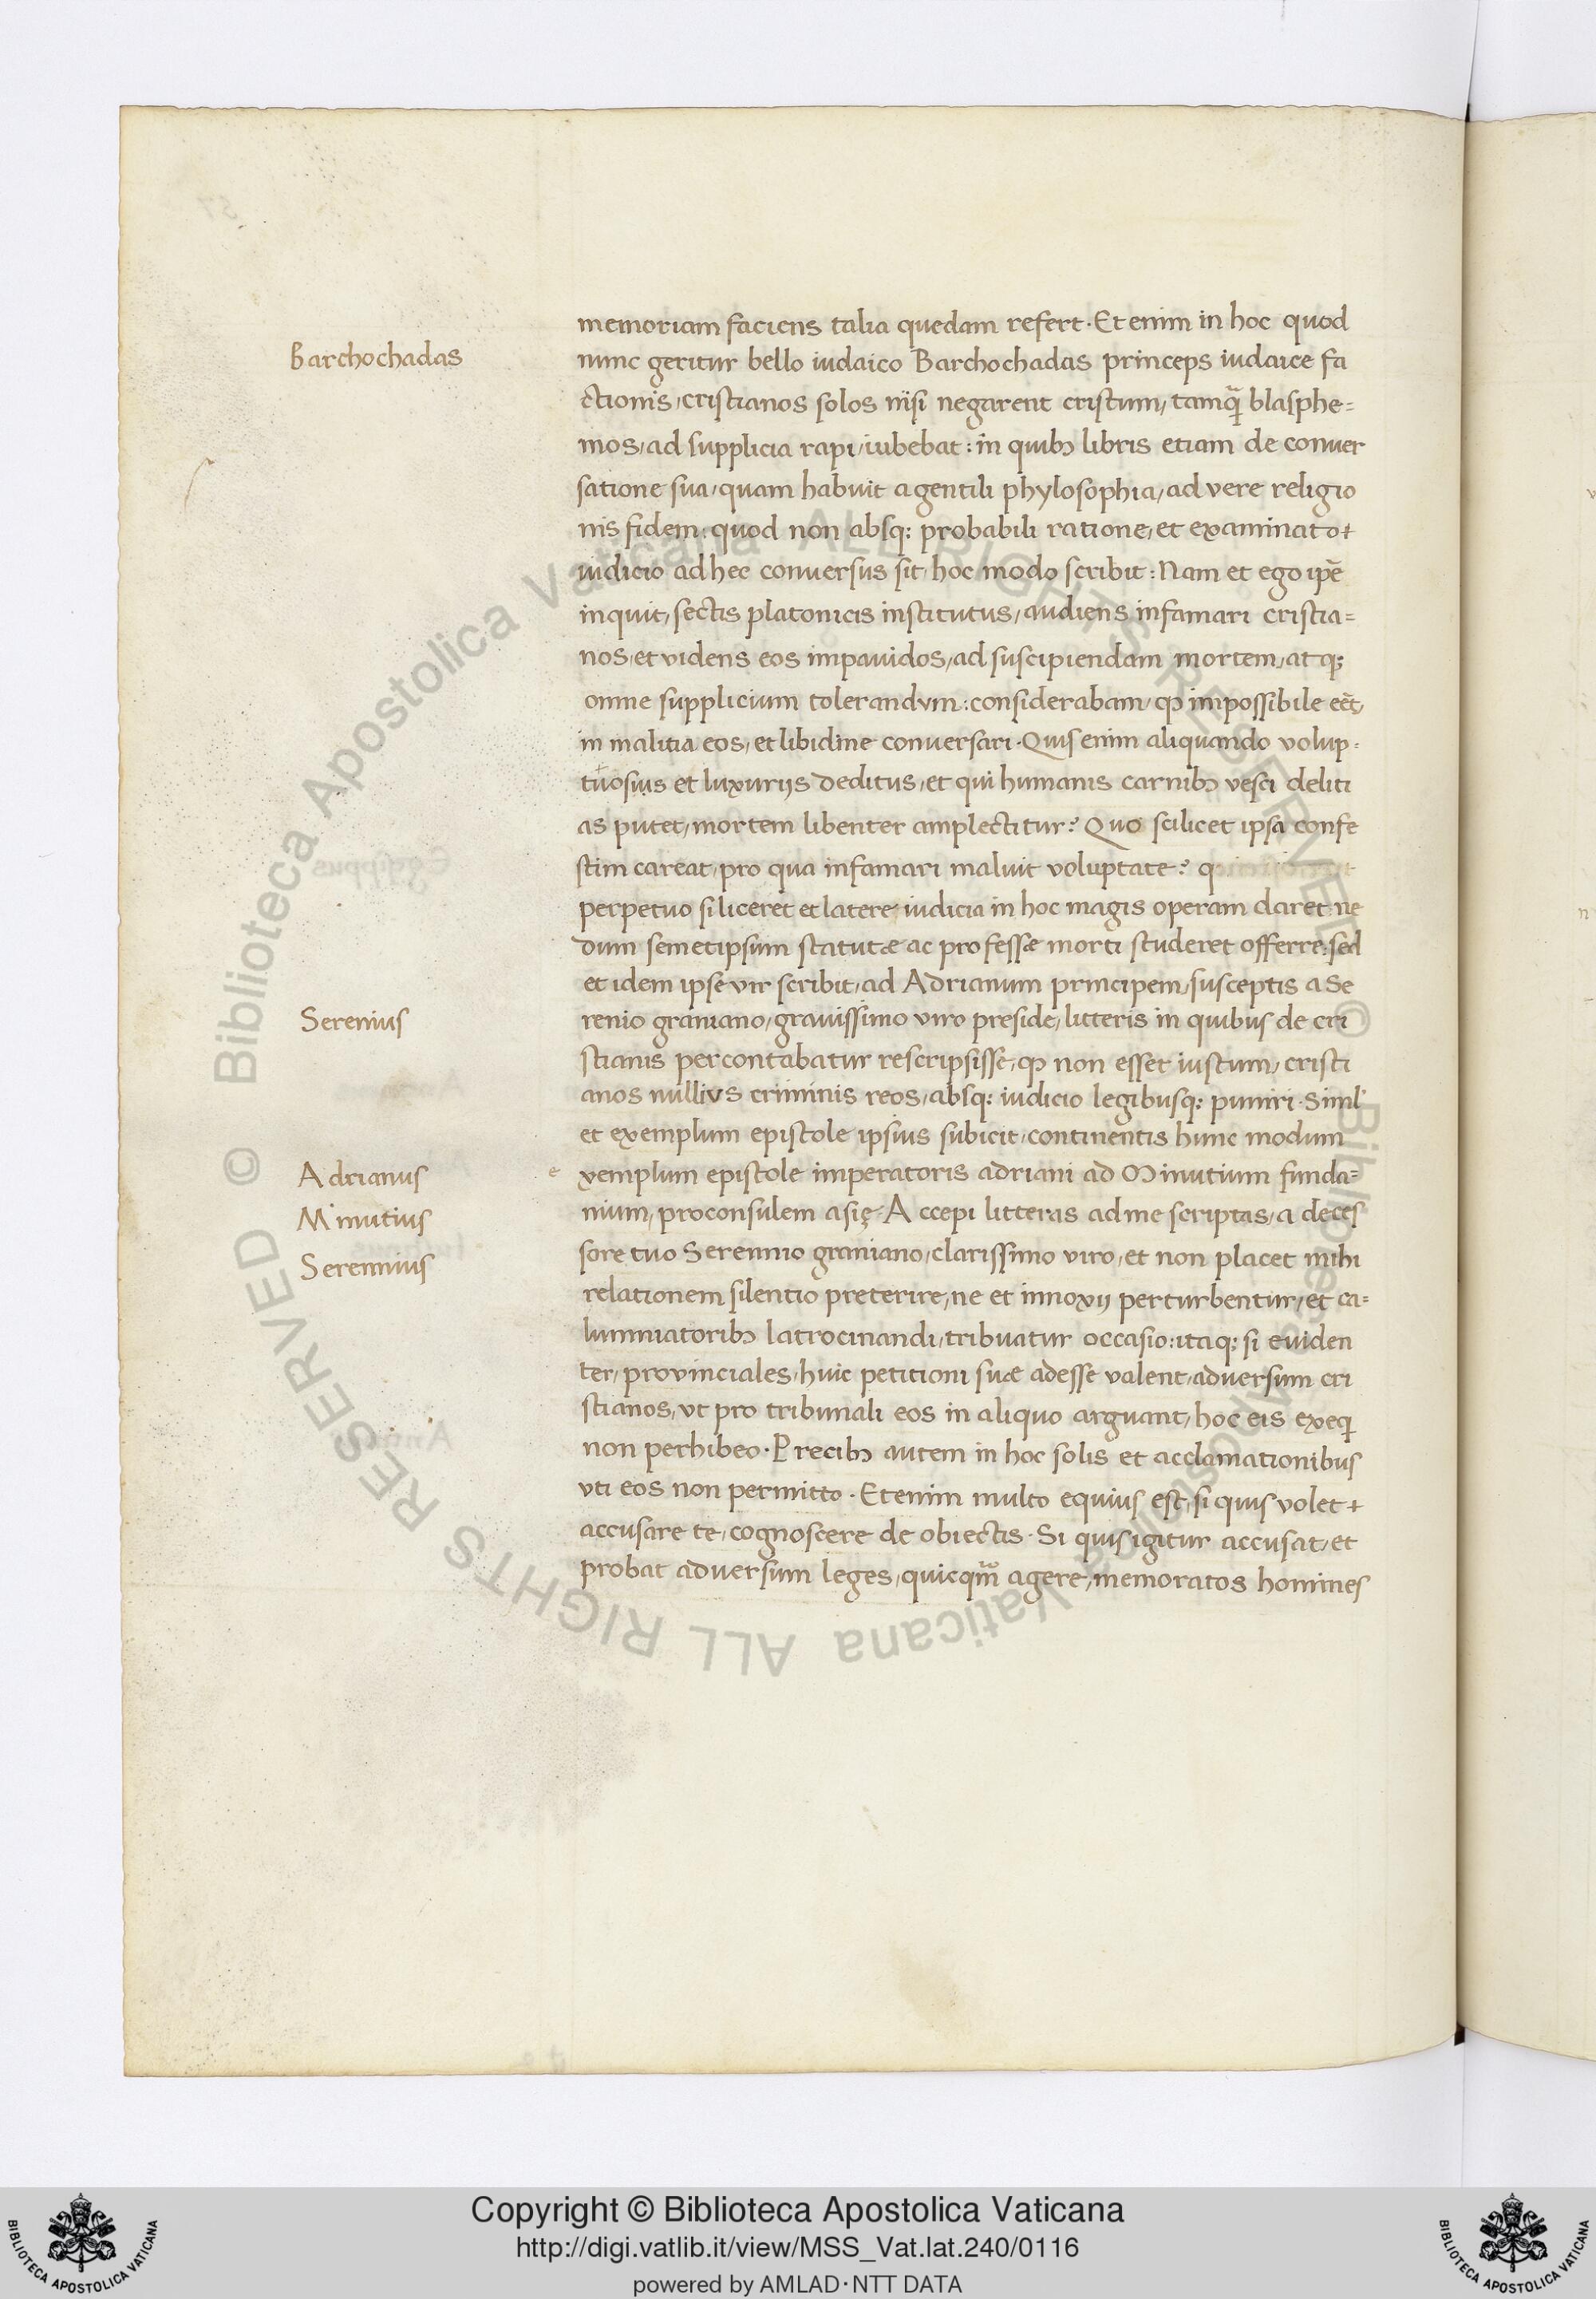 memoriam faciens talia quedam refert. Et enim in hoc quod
Barchochadas
nunc geritur bello iudaico Barchochadas princeps iudaice fa
ctionis, cristianos solos nisi negarent cristum, tamq̃ blasphe=
mos, ad supplicia rapi, iubebat: in quibꝫ libris etiam de conuer
satione sua, quam habuit a gentili phylosophia, ad vere religio
nis fidem: quod non absq; probabili ratione, et examinato+
iudicio ad hec conuersus sit, hoc modo scribit: Nam et ego ip̄e
inquit, sectis platonicis institutus, audiens infamari cristia=
nos, et videns eos impauidos, ad suscipiendam mortem, atq;
omne supplicium tolerandum: considerabam, ꝙ impossibile eēt,
in malitia eos, et libidine conuersari. Quis enim aliquando volup-
tuosius et luxurijs deditus, et qui humanis carnibꝫ vesci deliti
as putet, mortem libenter amplectitur? Quo scilicet ipsa confe
stim careat, pro qua infamari maluit voluptate?
perpetuo si liceret et latere iudicia in hoc magis operam daret: ne
dum semetipsum statutæ ac professæ morti studeret offerre: sed
et idem ipse vir scribit, ad Adrianum principem, susceptis a Se
Serenius
renio graniano, grauissimo viro preside, litteris in quibus de cri
stianis percontabatur rescripsisse, ꝙ non esset iustum, cristi
anos nullius criminis reos, absq; iudicio legibusq; puniri. Siml'
et exemplum epistole ipsius subicit, continentis hunc modum
Adrianus
e xemplum epistole imperatoris adriani ad Minutium funda=
Minutius
nium, proconsulem asię. Accepi litteras ad me scriptas, a deces
Serennius
sore tuo Serennio graniano, clarissimo viro, et non placet mihi
relationem silentio preterire, ne et innoxij perturbentur, et ca=
lumniatoribꝫ latrocinandi, tribuatur occasio: itaq; si euiden
ter, prouinciales, huic petitioni suæ adesse valent, aduersum cri
stianos, ut pro tribunali eos in aliquo arguant, hoc eis exeq̃
non perhibeo. Precibꝫ autem in hoc solis et acclamationibus
vti eos non permitto. Etenim multo equius est, si quis volet+
accusare te, cognoscere de obiectis. Si quis igitur accusat, et
probat aduersum leges, quicqm̃ agere, memoratos homines
Copyright © Biblioteca Apostolica Vaticana
http://digi.vatlib.it/view/MSS_Vat.lat.240/0116
powered by AMLAD·NTT DATA
© Biblioteca Apostolica Vaticana ALL RIGHTS RESERVED
© Biblioteca Apostolica Vaticana ALL RIGHTS RESERVED
BIBLIOTECA APOSTOLICA VATICANA
BIBLIOTECA APOSTOLICA VATICANA